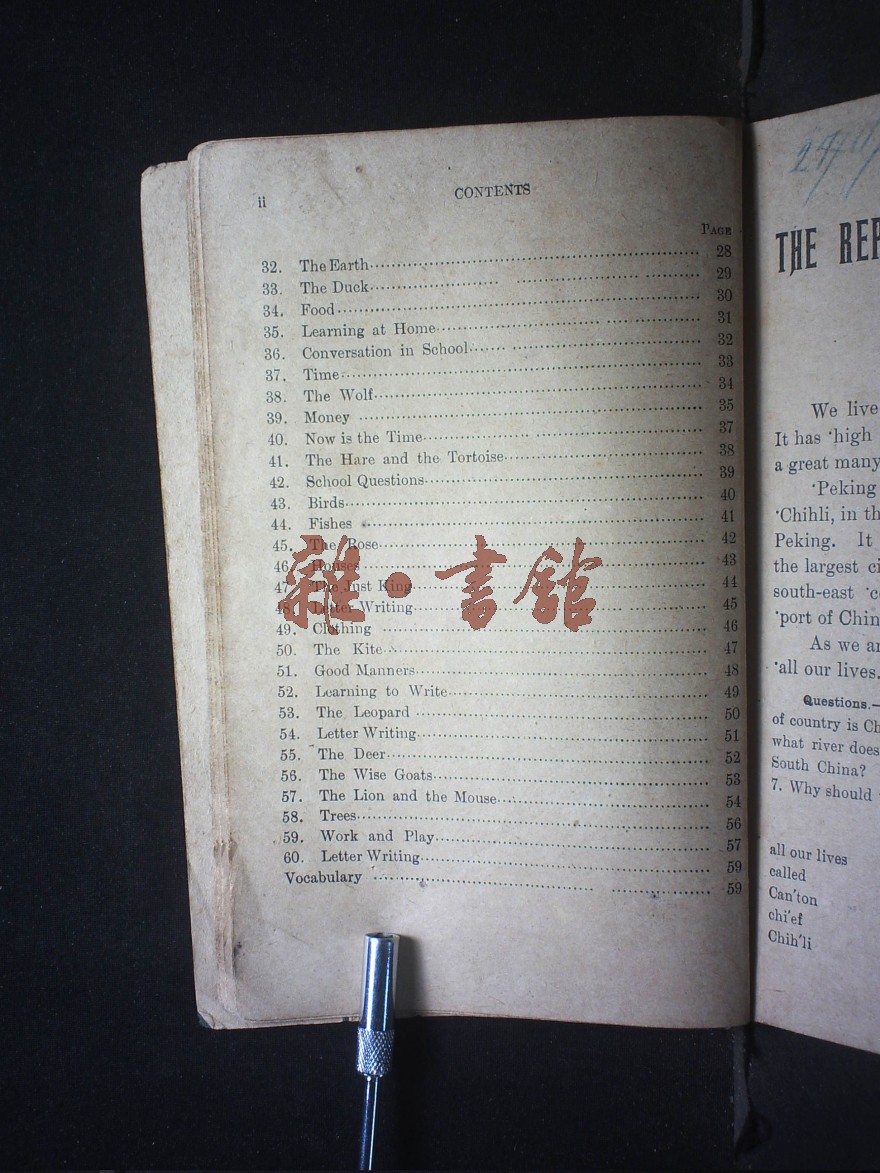 ii
CONTENTS
PAGE
32. The Earth 28
33. The Duck 29
34. Food 30
35. Learning at Home 31
36. Conversation in School 32
37. Time 33
38. The Wolf 34
39. Money 35
40. Now is the Time 37
41. The Hare and the Tortoise 38
42. School Questions 39
43. Birds 40
44. Fishes 41
45. The Rose 42
46. Houses 43
47. The Just King 44
48. Letter Writing 45
49. Clothing 46
50. The Kite 47
51. Good Manners 48
52. Learning to Write 49
53. The Leopard 50
54. Letter Writing 51
55. The Deer 52
56. The Wise Goats 53
57. The Lion and the Mouse 54
58. Trees 56
59. Work and Play 57
60. Letter Writing 59
Vocabulary 59
雜·書館
THE REP
We live
It has 'high
a great many
'Peking
'Chihli, in th
Peking. It
the largest ci
south-east 'co
'port of Chin
As we ar
'all our lives.
Questions.—
of country is Ch
what river does
South China?
7. Why should
all our lives
called
Can'ton
chi'ef
Chih'li